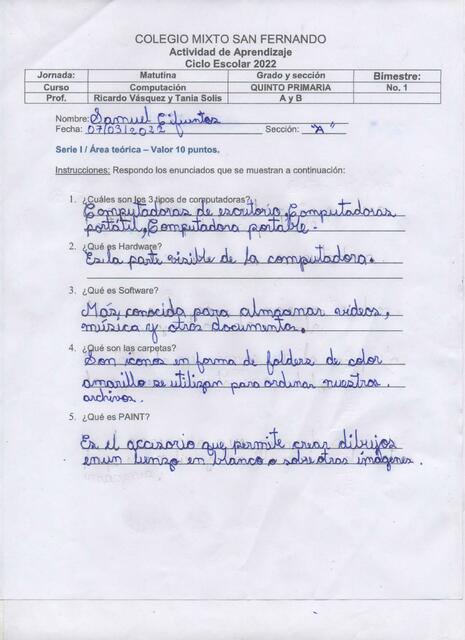 COLEGIO MIXTO SAN FERNANDO
Actividad de Aprendizaje
Ciclo Escolar 2022
Jornada: Matutina Grado y sección Bimestre:
Curso Computación QUINTO PRIMARIA No. 1
Prof. Ricardo Vásquez y Tania Solis A y B
Nombre: Samuel Cifuntos
Fecha: 07/03/2022 Sección: "A"
Serie I / Área teórica – Valor 10 puntos.
Instrucciones: Respondo los enunciados que se muestran a continuación:
1. ¿Cuáles son los 3 tipos de computadoras?
Computadoras de escritorio, Computadoras
portátil, Computadora portable.
2. ¿Qué es Hardware?
Es la parte visible de la computadora.
3. ¿Qué es Software?
Más conocida para almacanar videos,
música y otros documentos.
4. ¿Qué son las carpetas?
Son iconos en forma de folders de color
amarillo se utilizan para ordinar nuestros
archivos.
5. ¿Qué es PAINT?
Es el accesorio que permite crear dibujos
enun lienzo en blanco o sobre otras imágenes.